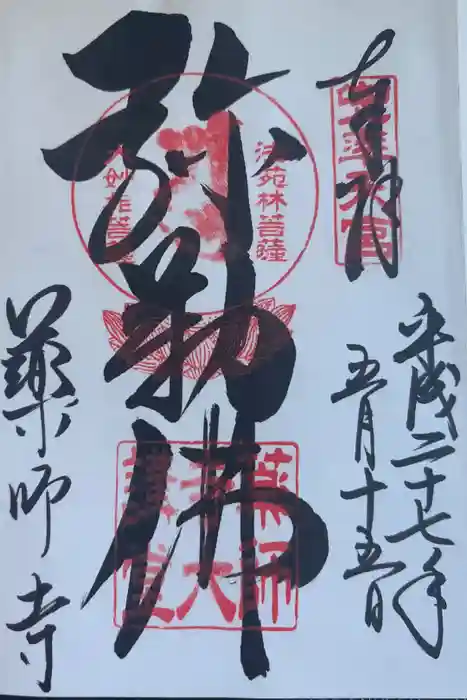 奉拝
平成二十七年
五月十五日
弥勒佛
法苑林菩薩
大妙相菩薩
薬師寺
薬師
寺大
講堂